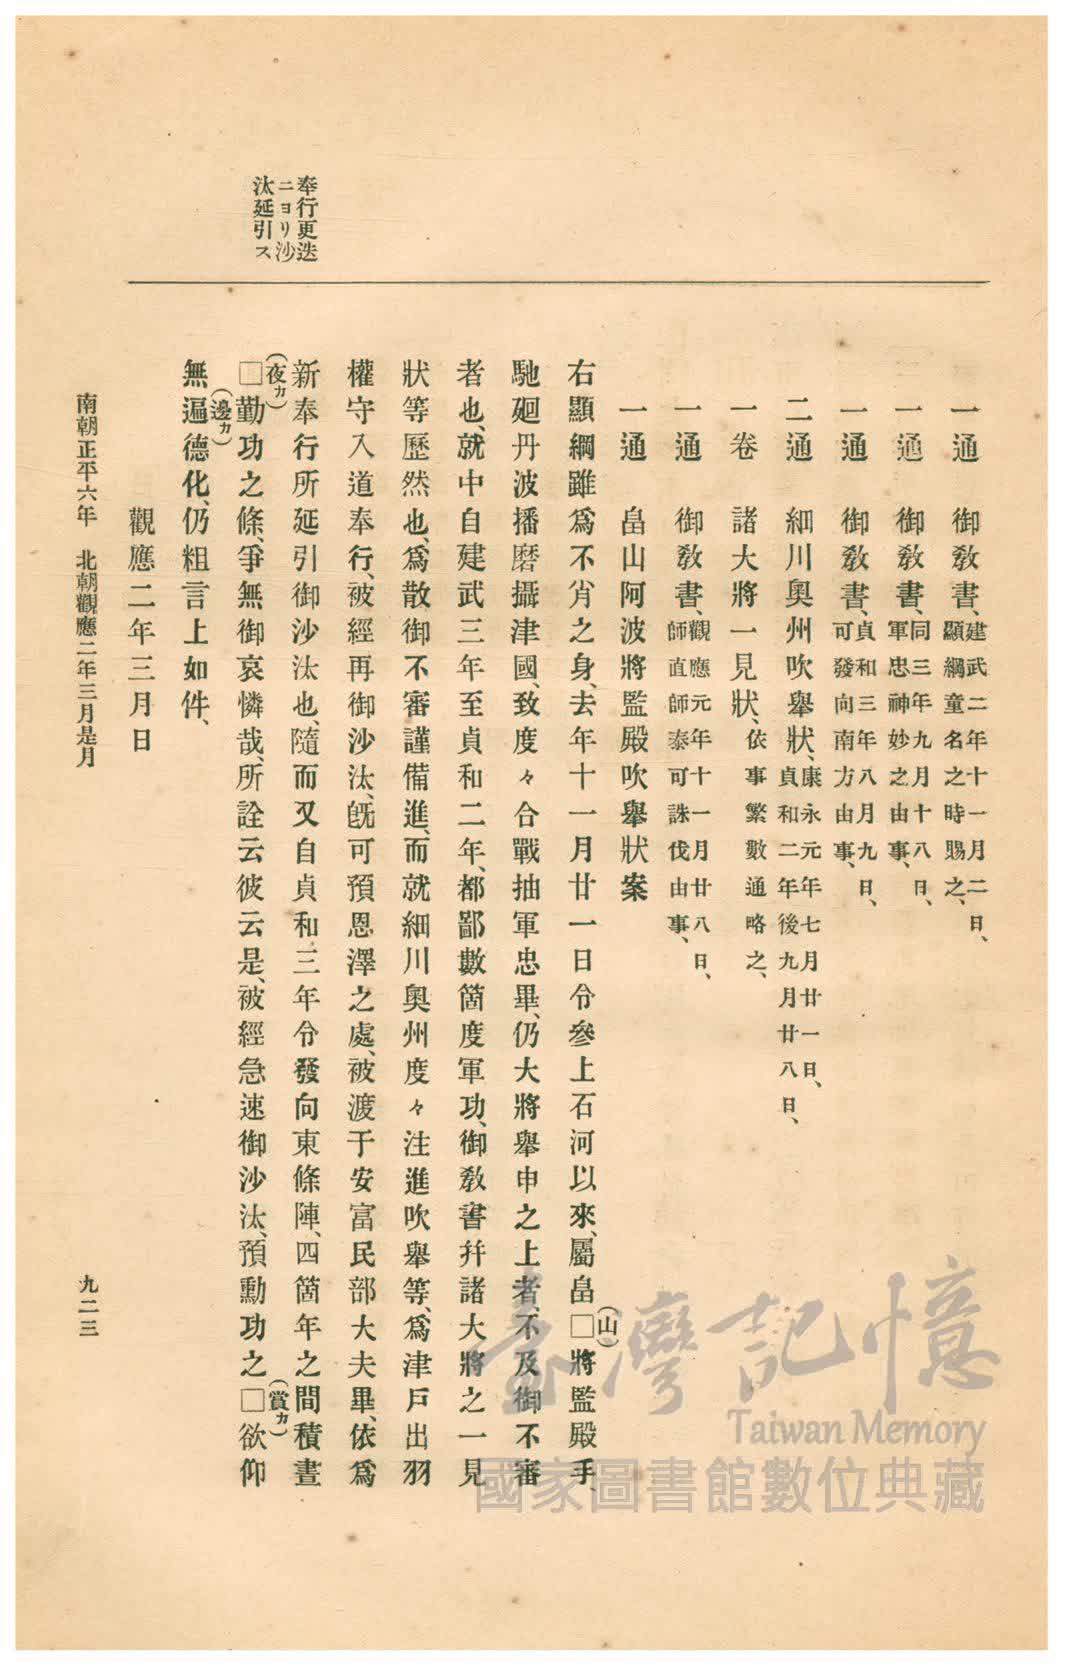 奉行更迭
ニヨリ沙
汰延引ス
一通　御教書、建武二年十一月二日、
顯綱童名之時賜之、
一通　御教書、同三年九月十八日、
軍忠神妙之由事、
一通　御教書、貞和三年八月九日、
可發向南方由事、
二通　細川奧州吹擧狀、康永元年七月廿一日、
貞和二年後九月廿八日、
一卷　諸大將一見狀、依事繁數通略之、
一通　御教書、觀應元年十一月廿八日、
師直師泰可誅伐由事、
一通　畠山阿波將監殿吹擧狀案
右顯綱雖爲不肖之身、去年十一月廿一日令參上石河以來、屬畠□(山)將監殿手、
馳廻丹波播磨攝津國、致度々合戰抽軍忠畢、仍大將擧申之上者、不及御不審
者也、就中自建武三年至貞和二年、都鄙數箇度軍功、御教書幷諸大將之一見
狀等歷然也、爲散御不審謹備進、而就細川奧州度々注進吹擧等、爲津戶出羽
權守入道奉行、被經再御沙汰、旣可預恩澤之處、被渡于安富民部大夫畢、依爲
新奉行所延引御沙汰也、隨而又自貞和三年令發向東條陣、四箇年之間積晝
□(夜カ)勤功之條、爭無御哀憐哉、所詮云彼云是、被經急速御沙汰、預勳功之□(賞カ)欲仰
無遍(邊カ)德化、仍粗言上如件、
觀應二年三月日
南朝正平六年　北朝觀應二年三月是月
九二三
臺灣記憶
Taiwan Memory
國家圖書館數位典藏